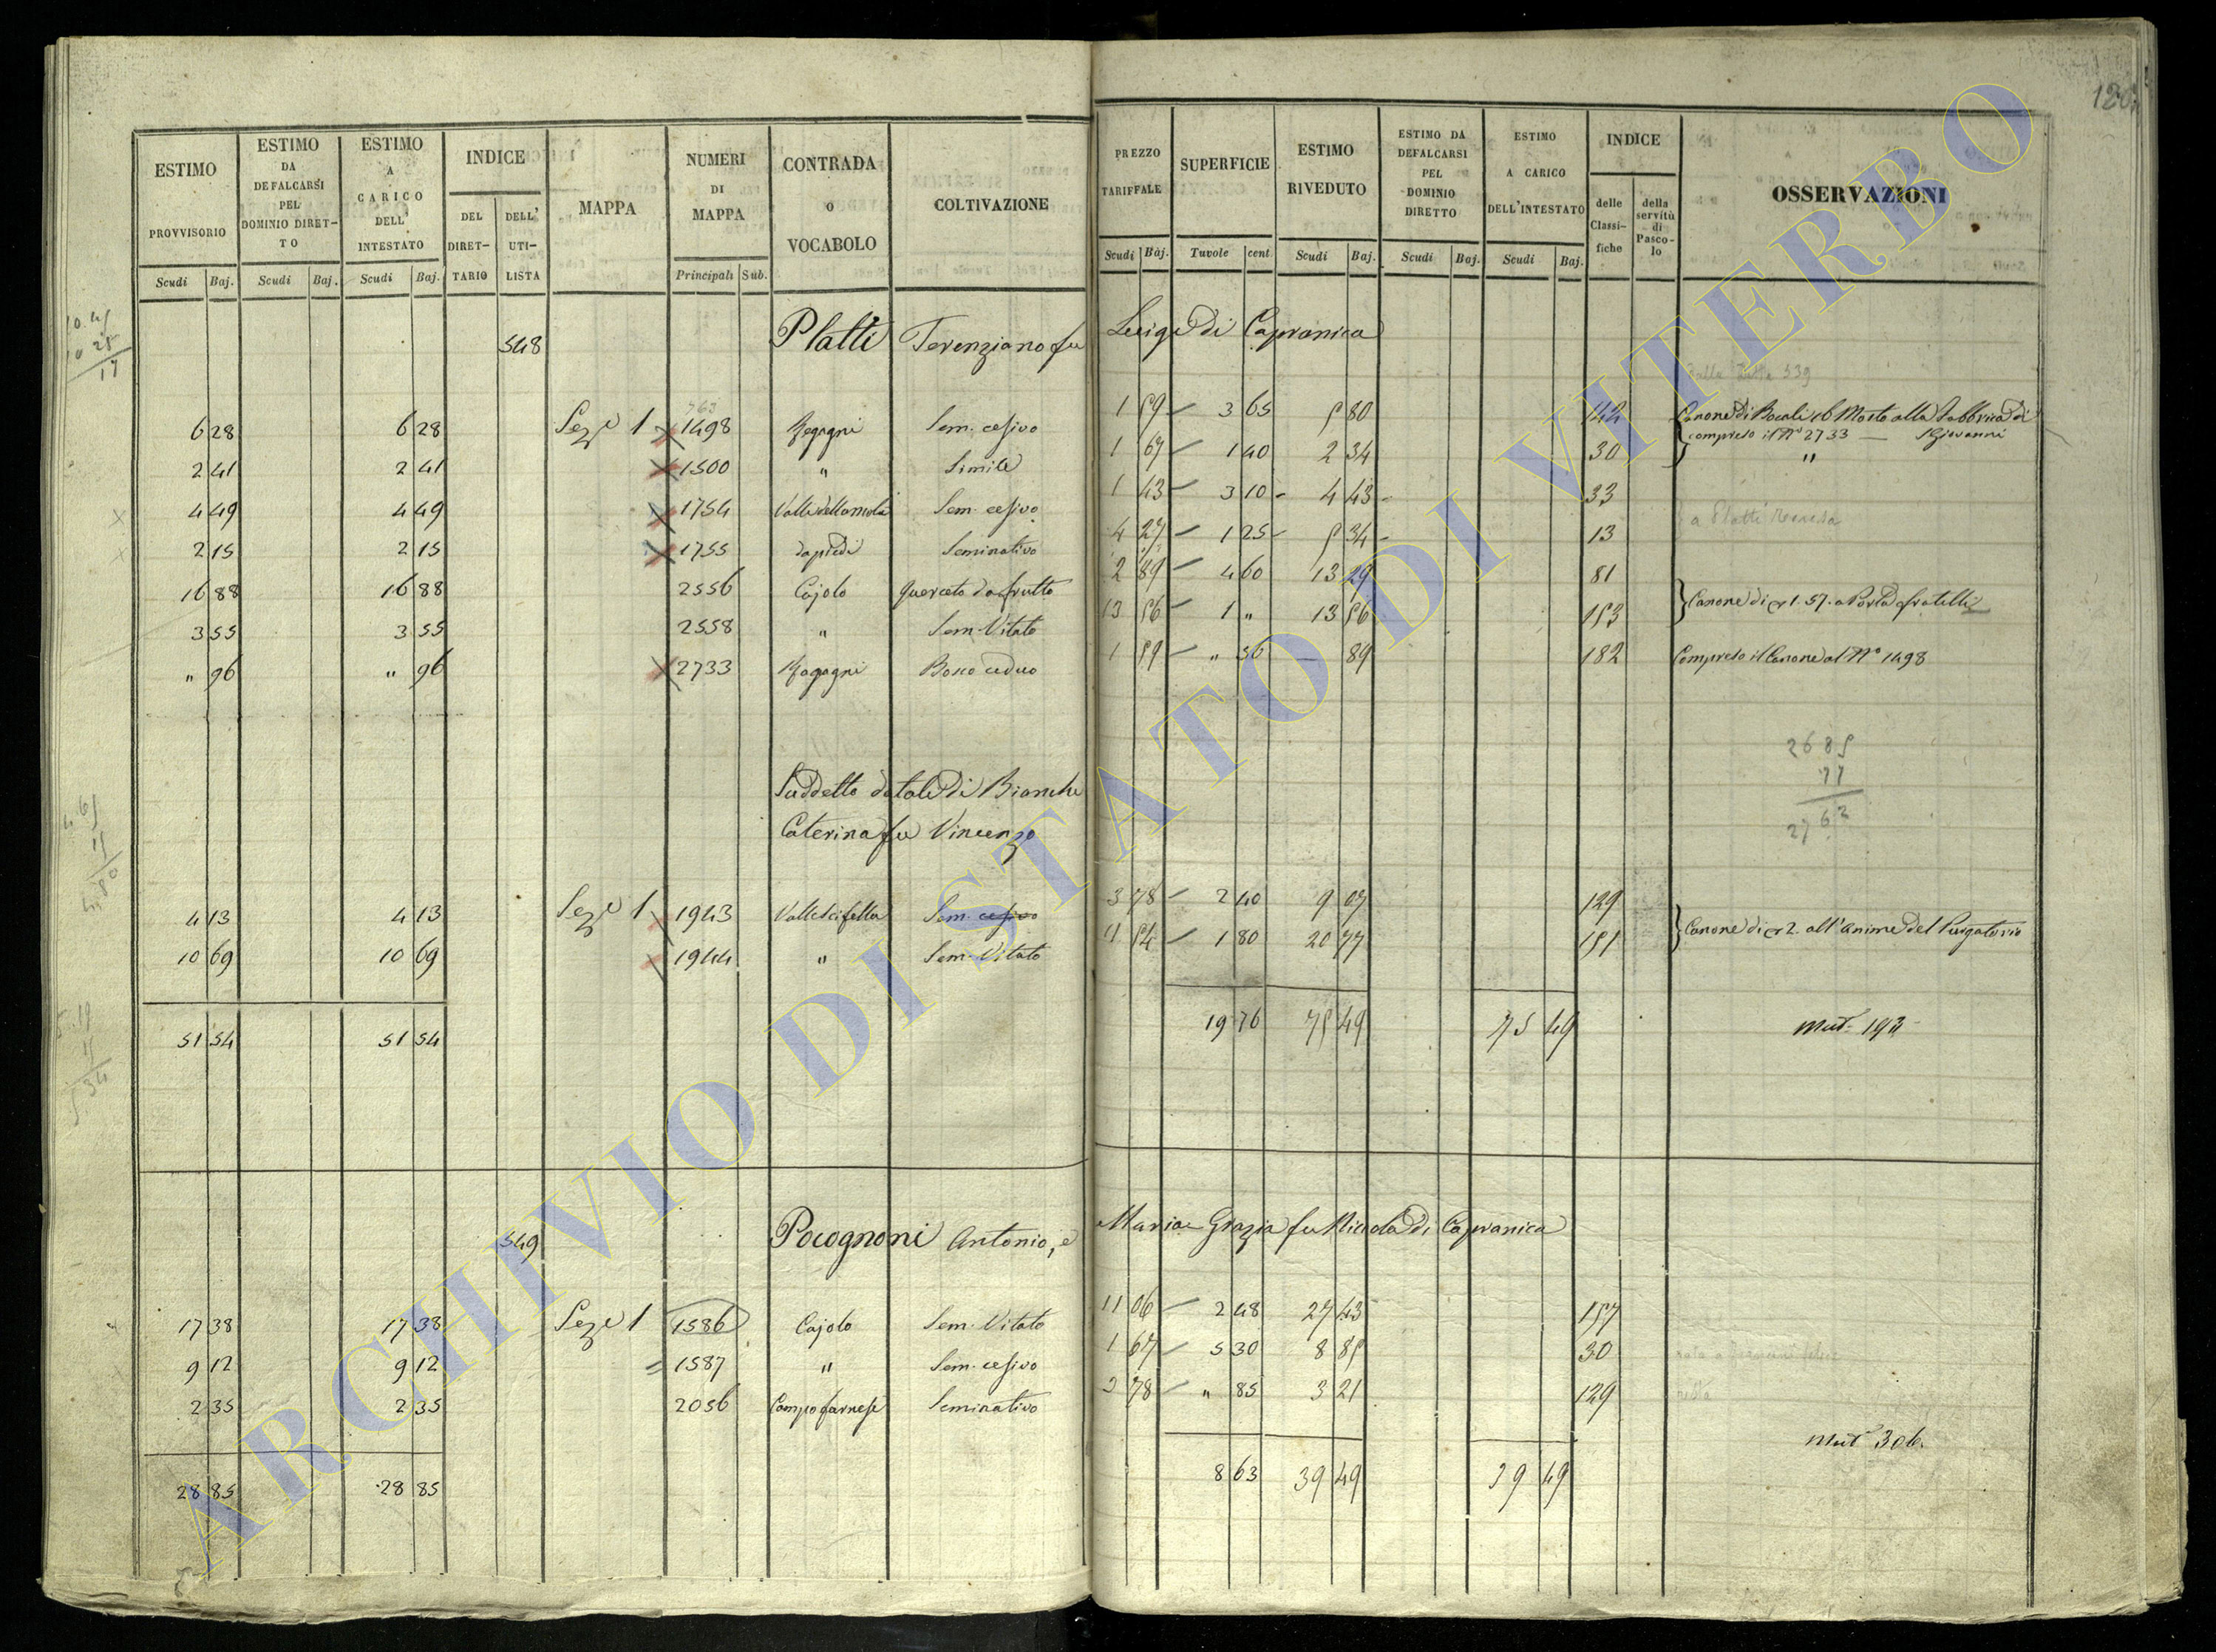 120
ESTIMO PROVVISORIO | ESTIMO DA DEFALCARSI PEL DOMINIO DIRETTO | ESTIMO A CARICO DELL' INTESTATO | INDICE DEL DIRETTARIO | DELL' UTILISTA | MAPPA | NUMERI DI MAPPA | CONTRADA O VOCABOLO | COLTIVAZIONE | PREZZO TARIFFALE | SUPERFICIE | ESTIMO RIVEDUTO | ESTIMO DA DEFALCARSI PEL DOMINIO DIRETTO | ESTIMO A CARICO DELL'INTESTATO | INDICE delle Classifiche | della servitù di Pascolo | OSSERVAZIONI
Scudi | Baj. | Scudi | Baj. | Scudi | Baj. | Principali | Sub. | Scudi | Baj. | Tavole | cent. | Scudi | Baj. | Scudi | Baj. | Scudi | Baj.
548 Platti Terenziano fu Luigi di Capranica
6 28 | 6 28 | Sez.e 1 | 1498 | Sem. cesivo | 1 59 | 3 65 | 5 80 | 142 | Canone di Bocali 16 Mosto alla Fabbrica di S Giovanni
compreso il N° 2733
2 41 | 2 41 | 1500 | " | Simile | 1 67 | 1 40 | 2 34 | 30 | "
4 49 | 4 49 | 1754 | Valle della mola | Sem. cesivo | 1 43 | 3 10 | 4 43 | 33
a Platti Teresa
2 15 | 2 15 | 1755 | da piedi | Seminativo | 4 27 | 1 25 | 5 34 | 13
16 88 | 16 88 | 2556 | Cajolo | Querceto da frutto | 2 89 | 4 60 | 13 29 | 81
3 55 | 3 55 | 2558 | " | Sem. Vitato | 13 56 | 1 " | 13 56 | 153 | Canone di 1.57. a Porta fratelli
" 96 | " 96 | 2733 | Bosco ceduo | 1 59 | " 56 | — 89 | 182 | Compreso il Canone al N° 1498
2685
77
2762
Suddetto dotale di Bianchi
Caterina fu Vincenzo
4 13 | 4 13 | Sez.e 1 | 1943 | Sem. cesivo | 3 78 | 2 40 | 9 07 | 129
10 69 | 10 69 | 1944 | " | Sem. Vitato | 11 54 | 1 80 | 20 77 | 151 | Canone di 2. all'anime del Purgatorio
51 54 | 51 54 | 19 76 | 75 49 | 75 49 | Mut.
549 Pocognoni Antonio, e Maria Grazia fu Niccola di Capranica
17 38 | 17 38 | Sez.e 1 | 1586 | Cajolo | Sem. Vitato | 11 06 | 2 48 | 27 43 | 157
9 12 | 9 12 | 1587 | " | Sem. cesivo | 1 67 | 5 30 | 8 85 | 30
2 35 | 2 35 | 2056 | Campo farnese | Seminativo | 3 78 | " 85 | 3 21 | 129
Mut. 306.
28 85 | 28 85 | 8 63 | 39 49 | 39 49
ARCHIVIO DI STATO DI VITERBO